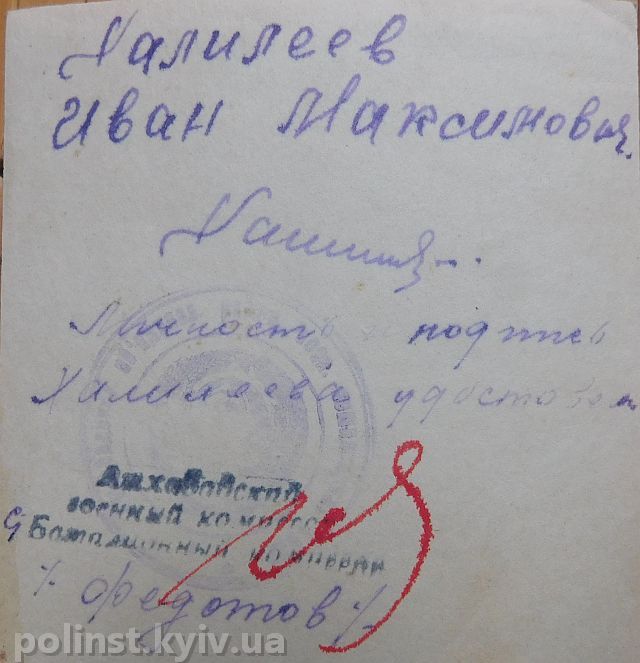 Халилеев
Иван Максимович.
Личность и подпись
Халилеева удостовер
Ашхабадский
военный комиссар
Батальонный комиссар
/Федотов/
polinst.kyiv.ua